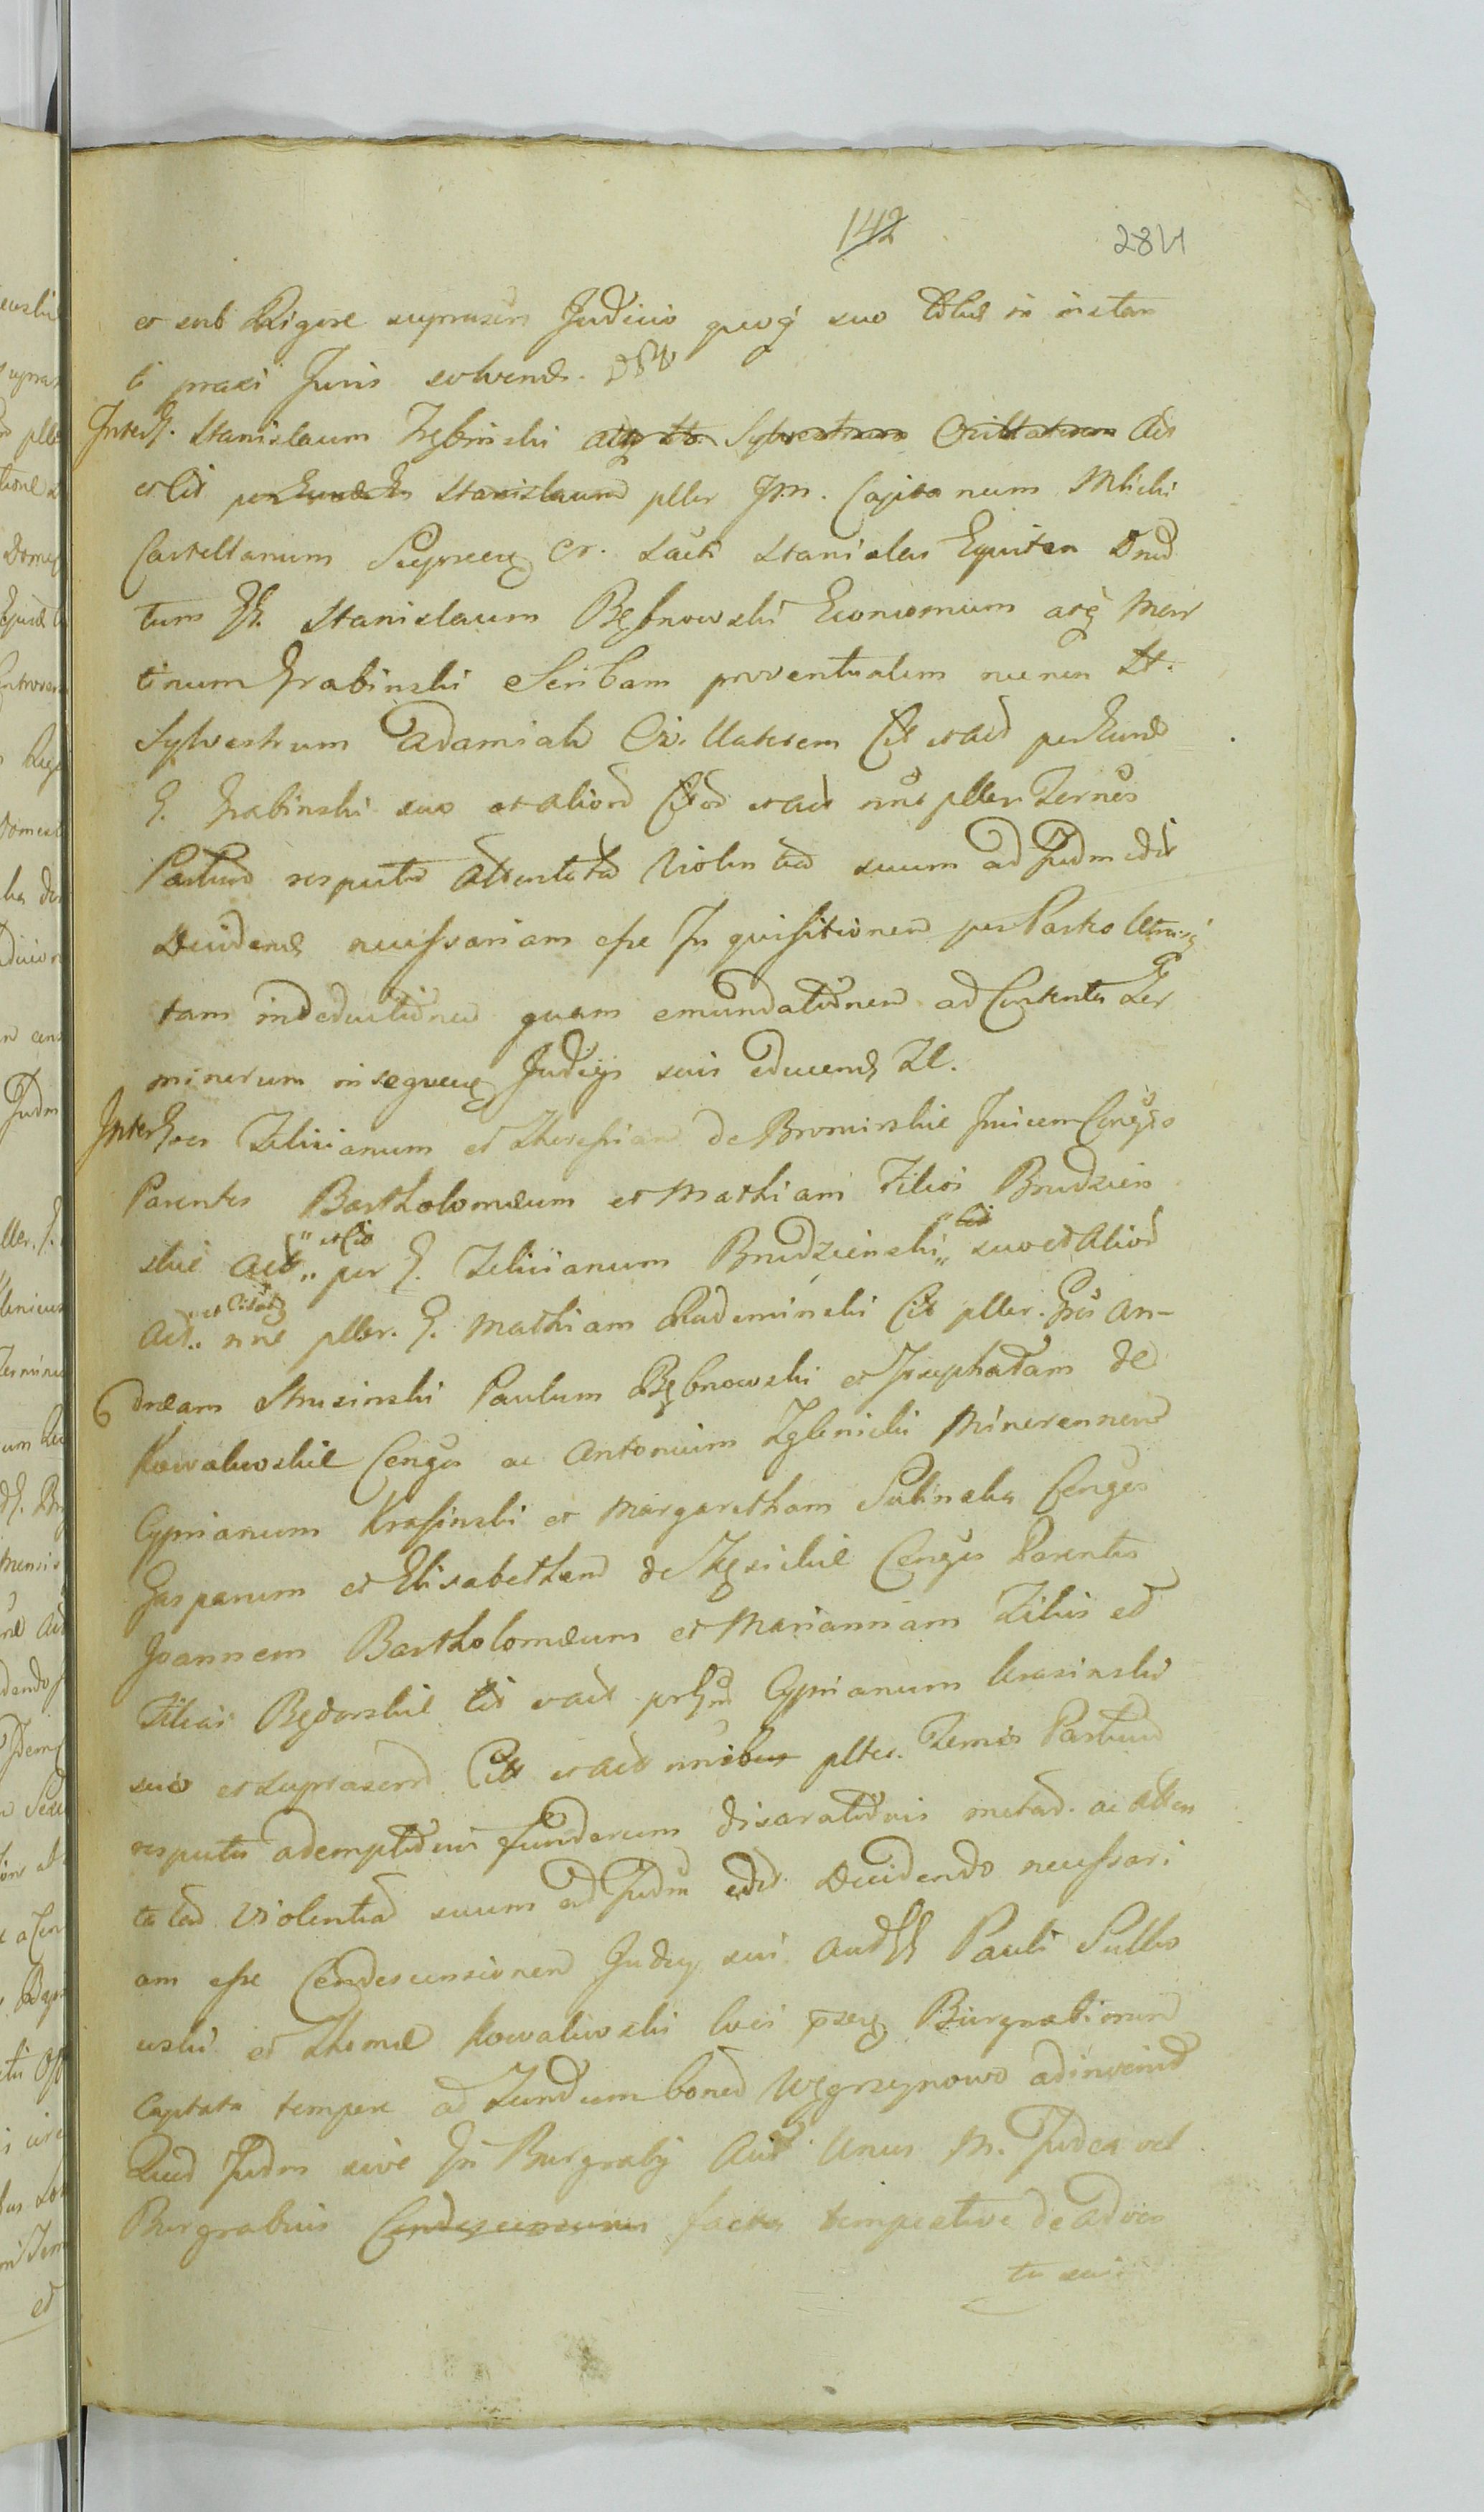 142
284
et sub Rigore suprascr Judicio quoq suo in instan
ti praxi Juris solvend.
Inter G. Stanislaum Zglinski atq Sylvestrum Act
et Cit per Eund Stanislaum pller J.M. Capitaneum Mlicki
Castellanum Sieprcen et Sacti Stanislai Equitem
tum G. Stanislaum Bębnowski Economum atq Mar
tinum Grabinski Scribam proventualem nec non
Sylvestrum Adamiak Cit et act per Eund
G. Grabinski suo et aliord Cit et act nne pller Termes
Partium respectu Attentatd Violentiad suum ad Judm edit
Decidend necessariam esse Inquisitionem per Partes Utrasq
tam in deductionem quam emundationem ad Contenta Ter
minorum in seqven Judiciis suis educend
Inter Gsos Felicianum et Theressiam de Bromirskie Invicem Congs
Parentes Bartholomæum et Mathiam Filios Brudzien
skie Act et Cit per G. Felicianum Brudzienski Cit suo et Aliord
Act. et Citatq nne pller. G. Mathiam Rademinski Cit pller. Gsos An-
6 dream Strusinski Paulum Bębnowski et Josephatam de
Kowalewskie Conges ac Antonium Zglenicki Minorennem
Cyprianum Krassinski et Margaretham Sulinska Conges
Gasparum et Elisabetham de Conges Parentes
Joannem Bartholomæum et Mariannam Filios et
Filias Będorskie Cit et act Cyprianum Krasinski
suo et suprascrd Cit et act nnibus pller. Termes Partium
respectu ademptionis fundorum disarationis metad. ac atten
tatad violentiad suum ad Judm edit. Decidendo necessari
am esse Condescensionem Judcy sui Aud Pauli Sulko
wski et Thomæ Kowalewski loci Burgrabiorum
Captato tempore ad Fundum bonod Węgrzynowo adinveniend
Qud Judm sive In Burgrabij Aut Unus M. Judex vel
Burgrabius Condescensum facta tempestive de adven
tu sui